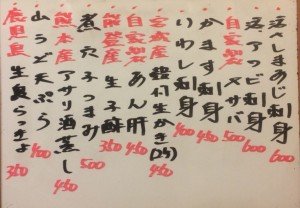 活〆しまあじ刺身 600
活アワビ刺身 600
自家製 〆サバ 500
かます刺身 450
いわし刺身 400
宮城産 殻付生かき(2ケ) 450
自家製 あん肝 450
能登産 生子酢 350
煮穴子つまみ 500
熊本産 アサリ酒蒸し 450
山うど天ぷら 400
鹿児島 生らっきょ 350